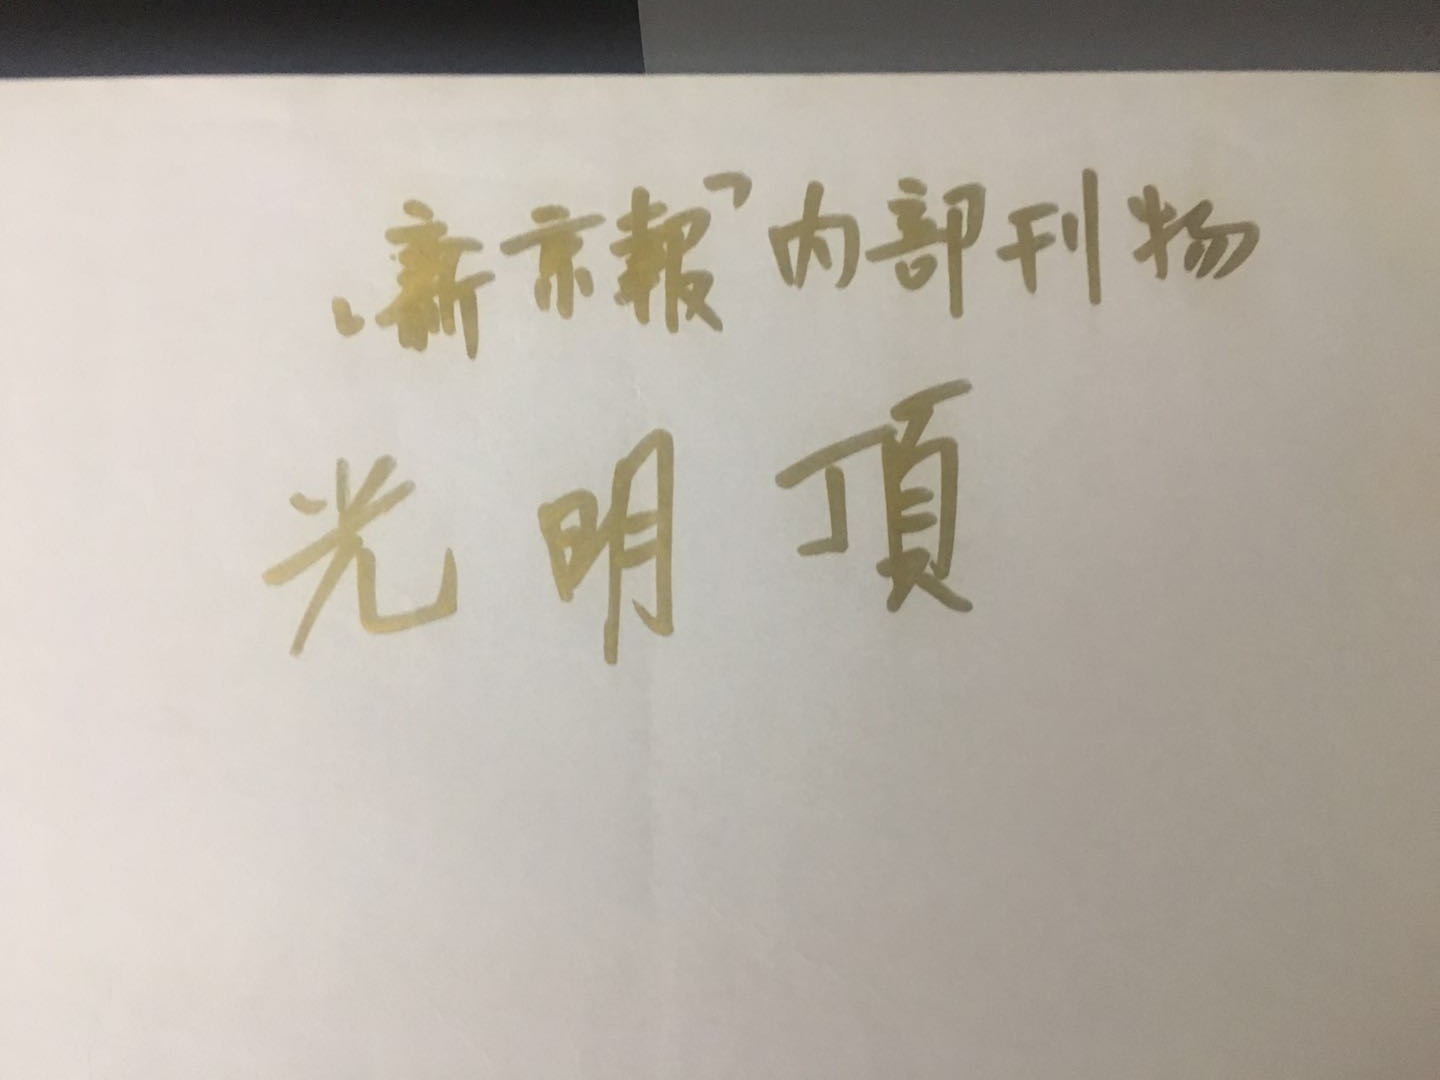 「新京報」内部刊物
光明頂